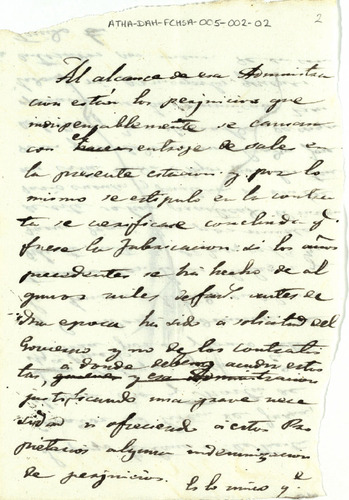 ATHA-DAH-FCHSA-005-002-02
2
Al alcance de esa Administra
cion estan los perjuicios que
indispensablemente se causan
con el entroje de sales en
la presente estacion y por lo
mismo se estipuló en la contra
ta se verificase concluida q.
fuese la fabricacion. Si los años
precedentes se há hecho de al
gunos miles de fan.s antes de
esa epoca ha sido á solicitud del
Govierno y no de los contrati
tas, á donde acudir estos
justificando una grave nece
sidad si ofreciendo á estos Pro
pietarios alguna indemnizacion
de perjuicios. Es lo unico q.e